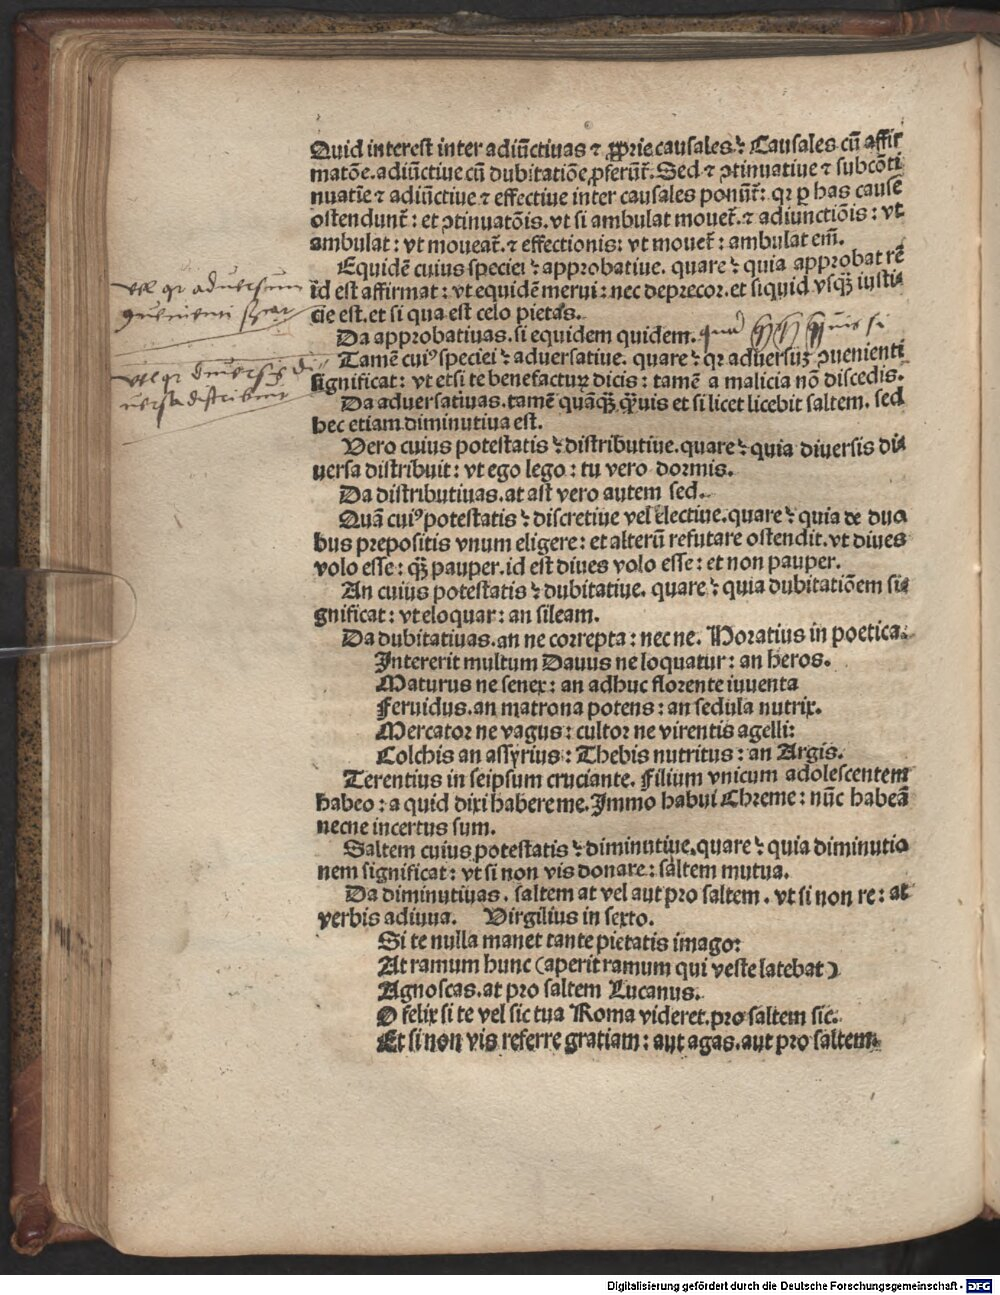 Quid interest inter adiūctiuas ⁊ ꝓprie causales ꝫ Causales cū affir
matōe. adiūctiue cū dubitatiōe ꝓferūt᷑. Sed ⁊ ↄtinuatiue ⁊ subcōti
nuatiē ⁊ adiūctiue ⁊ effectiue inter causales ponūt᷑: qꝛ ꝑ has cause
ostendunt᷑: et ↄtinuatōis. vt si ambulat mouet᷑. ⁊ adiunctiōis: vt
ambulat: vt moueat᷑. ⁊ effectionis: vt mouet᷑: ambulat em̄.
Equidē cuius speciei ꝫ approbatiue. quare ꝫ quia approbat rē
id est affirmat: vt equidē merui: nec deprecor. et siquid vsqꝫ iusti-
cie est. et si qua est celo pietas.
Da approbatiuas. si equidem quidem.
Tamē cuiꝰ speciei ꝫ aduersatiue. quare ꝫ qꝛ aduersuꝫ ↄuenienti
significat: vt etsi te benefactuꝝ dicis: tamē a malicia nō discedis.
Da aduersatiuas. tamē quāqꝫ̄ qᷓuis et si licet licebit saltem. sed
hec etiam diminutiua est.
Vero cuius potestatis ꝫ distributiue. quare ꝫ quia diuersis di-
uersa distribuit: vt ego lego: tu vero dormis.
Da distributiuas. at ast vero autem sed.
Quā cuiꝰ potestatis ꝫ discretiue vel electiue. quare ꝫ quia de duo
bus prepositis vnum eligere: et alterū refutare ostendit. vt diues
volo esse: qꝫ̄ pauper. id est diues volo esse: et non pauper.
An cuius potestatis ꝫ dubitatiue. quare ꝫ quia dubitatiōem si-
gnificat: vt eloquar: an sileam.
Da dubitatiuas. an ne correpta: nec ne. Horatius in poetica.
Intererit multum Dauus ne loquatur: an heros.
Maturus ne senex: an adhuc florente iuuenta
Feruidus. an matrona potens: an sedula nutrix.
Mercator ne vagus: cultor ne virentis agelli:
Colchis an assyrius: Thebis nutritus: an Argis.
Terentius in seipsum cruciante. Filium vnicum adolescentem
habeo: a quid dixi habere me. Immo habui Chreme: nūc habeā
necne incertus sum.
Saltem cuius potestatis ꝫ diminutiue. quare ꝫ quia diminutio
nem significat: vt si non vis donare: saltem mutua.
Da diminutiuas. saltem at vel aut pro saltem. vt si non re: at
verbis adiuua. Virgilius in sexto.
Si te nulla manet tante pietatis imago:
At ramum hunc (aperit ramum qui veste latebat)
Agnoscas. at pro saltem Lucanus.
O felix si te vel sic tua Roma videret. pro saltem sic.
Et si non vis referre gratiam: aut agas. aut pro saltem.
vel qꝛ aduersum
vel qꝛ diuersis di
uersa distribuit
Digitalisierung gefördert durch die Deutsche Forschungsgemeinschaft - DFG